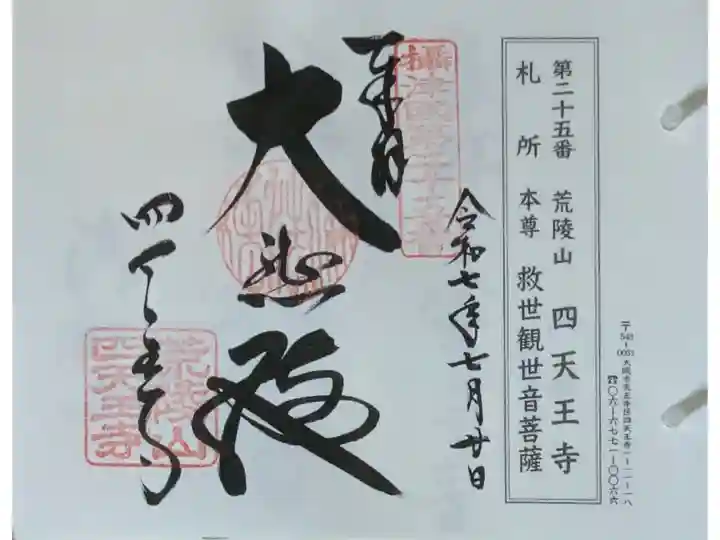 第二十五番 荒陵山 四天王寺
札所 本尊 救世観世音菩薩
〒543-0051 大阪市天王寺区四天王寺一-一一-一八
☎〇六-六七七一-〇〇六六
攝津國第二十五番
奉拝
令和七年七月廿日
大悲殿
四天王寺
荒陵山
四天王寺